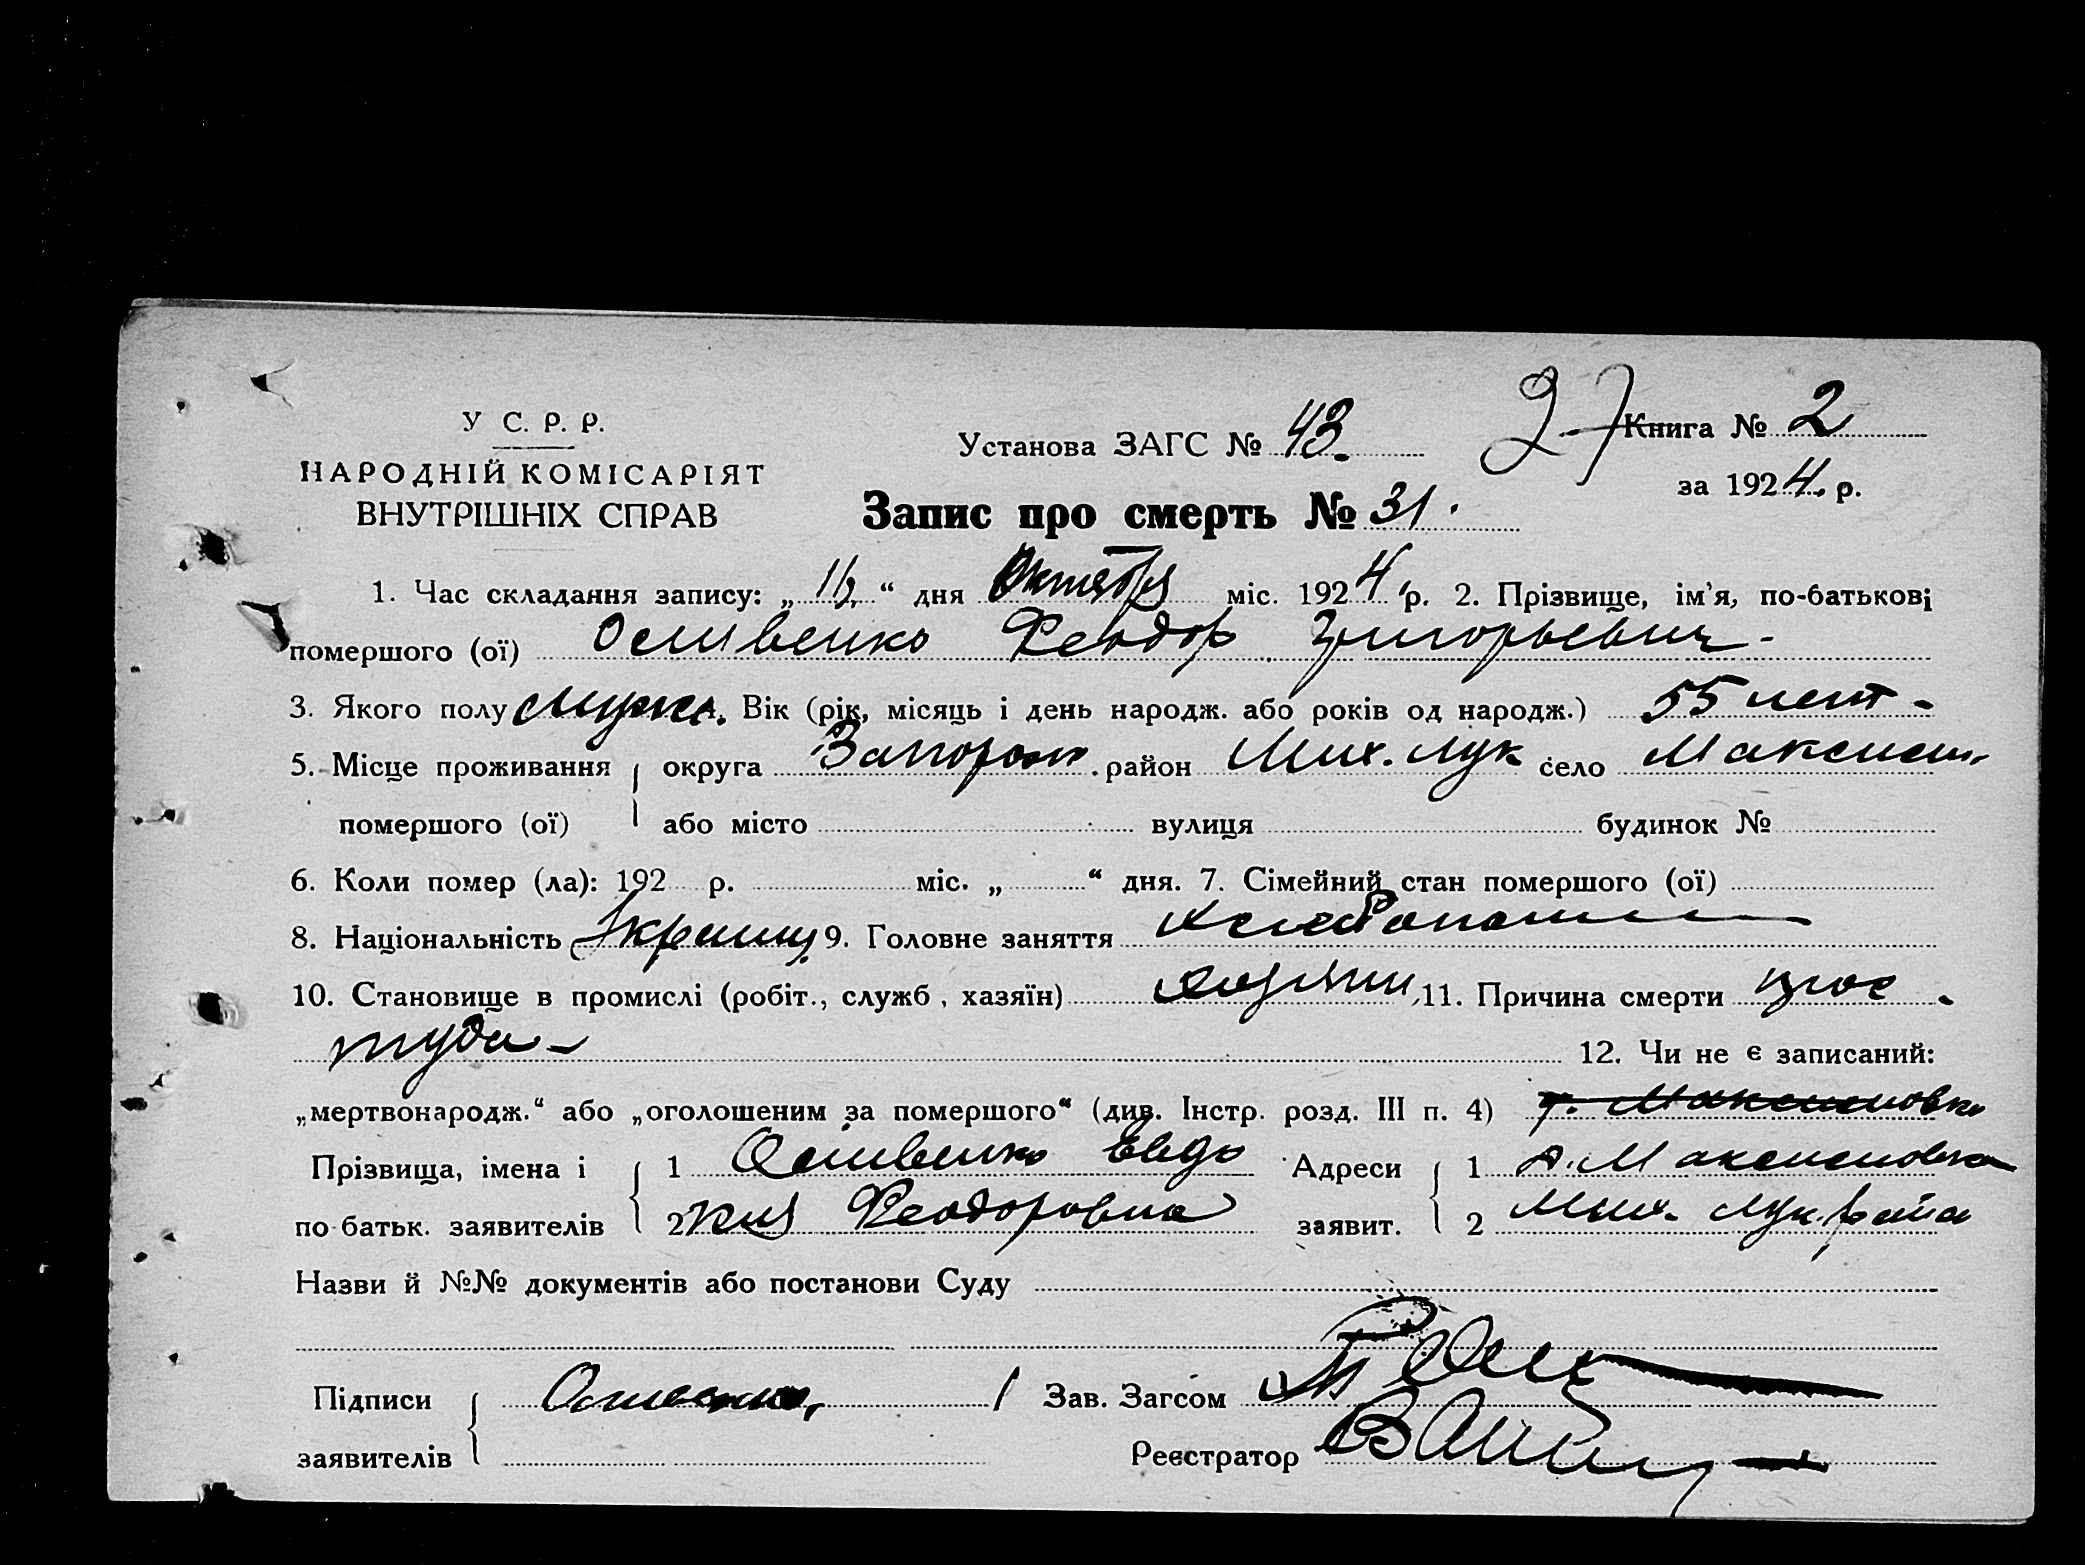 У С. Р. Р.
НАРОДНІЙ КОМІСАРІЯТ
ВНУТРІШНІХ СПРАВ
Установа ЗАГС № 43.
27 Книга № 2
за 1924. р.
Запис про смерть № 31.
1. Час складання запису: „ “ дня Октября міс. 1924 р. 2. Прізвище, ім’я, по-батькові
помершого (ої) Осливенко Феодор Григорьевич -
3. Якого полу Вік (рік, місяць і день народж. або років од народж.) 55 лет -
5. Місце проживання округа Запорож район Мих. Лук село Максим
помершого (ої) або місто вулиця будинок №
6. Коли помер (ла): 192 р. міс. „ “ дня. 7. Сімейний стан помершого (ої)
8. Національність 9. Головне заняття
10. Становище в промислі (робіт., служб, хазяїн) хозяин 11. Причина смерти прос
туда -
12. Чи не є записаний:
„мертвонародж.“ або „оголошеним за помершого“ (див. Інстр. розд. III п. 4)
Прізвища, імена і 1 Осливенко Евдо Адреси 1
по батьк. заявителів 2 кия Феодоровна заявит. 2 Мих. Лук. района
Назви й №№ документів або постанови Суду
Підписи Зав. Загсом
заявителів Реєстратор